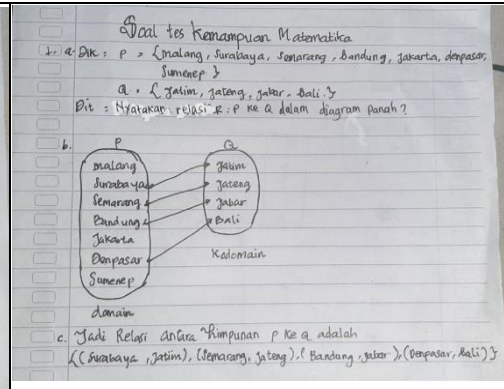 Soal tes Kemampuan Matematika
1. a. Dik : P = {malang, Surabaya, Semarang, Bandung, Jakarta, denpasar,
Sumenep }
Q = { Jatim, Jateng, Jabar, Bali. }
Dit = Nyatakan relasi R : P ke Q dalam diagram panah?
b. P Q
malang Jatim
Surabaya Jateng
Semarang Jabar
Bandung Bali
Jakarta
Denpasar Kodomain
Sumenep
domain
c. Jadi Relasi antara Himpunan P Ke Q adalah
{(Surabaya, Jatim), (Semarang, Jateng), (Bandung, Jabar), (Denpasar, Bali) }